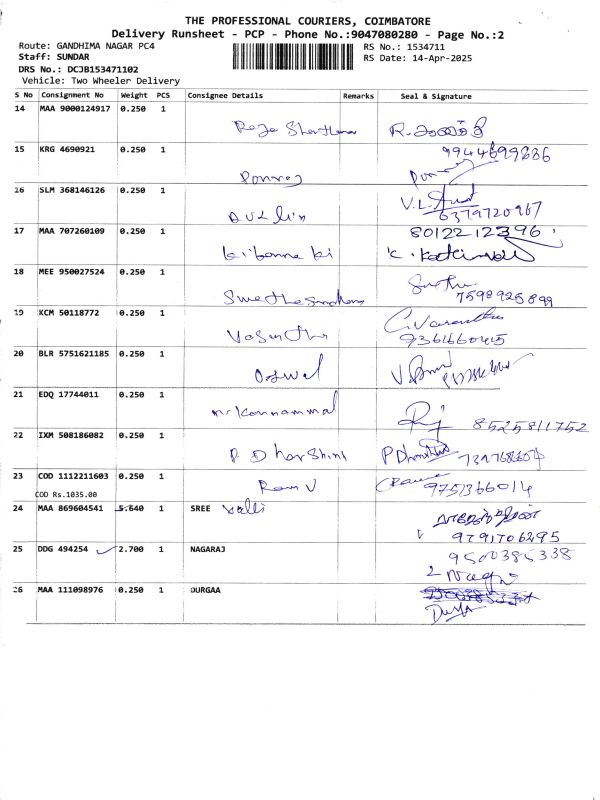 THE PROFESSIONAL COURIERS, COIMBATORE
Delivery Runsheet - PCP - Phone No.:9047080280 - Page No.:2
Route: GANDHIMA NAGAR PC4 RS No.: 1534711
Staff: SUNDAR RS Date: 14-Apr-2025
DRS No.: DCJB153471102
Vehicle: Two Wheeler Delivery
S No Consignment No Weight PCS Consignee Details Remarks Seal & Signature
14 MAA 9000124917 0.250 1
15 KRG 4690921 0.250 1 9944699886
Ponnraj
16 SLM 368146126 0.250 1
6379720967
17 MAA 707260109 0.250 1 8012212396
18 MEE 950027524 0.250 1
7598925899
19 KCM 50118772 0.250 1
Vasantha 9361660415
20 BLR 5751621185 0.250 1
Oswal
21 EDQ 17744011 0.250 1
mr kannammal 8525811752
22 IXM 508186082 0.250 1
P Dharshini
23 COD 1112211603 0.250 1
Ram V 9751366014
COD Rs.1035.00
24 MAA 869604541 5.640 1 SREE Valli
9791706295
25 DDG 494254 2.700 1 NAGARAJ 9500385338
26 MAA 111098976 0.250 1 DURGAA